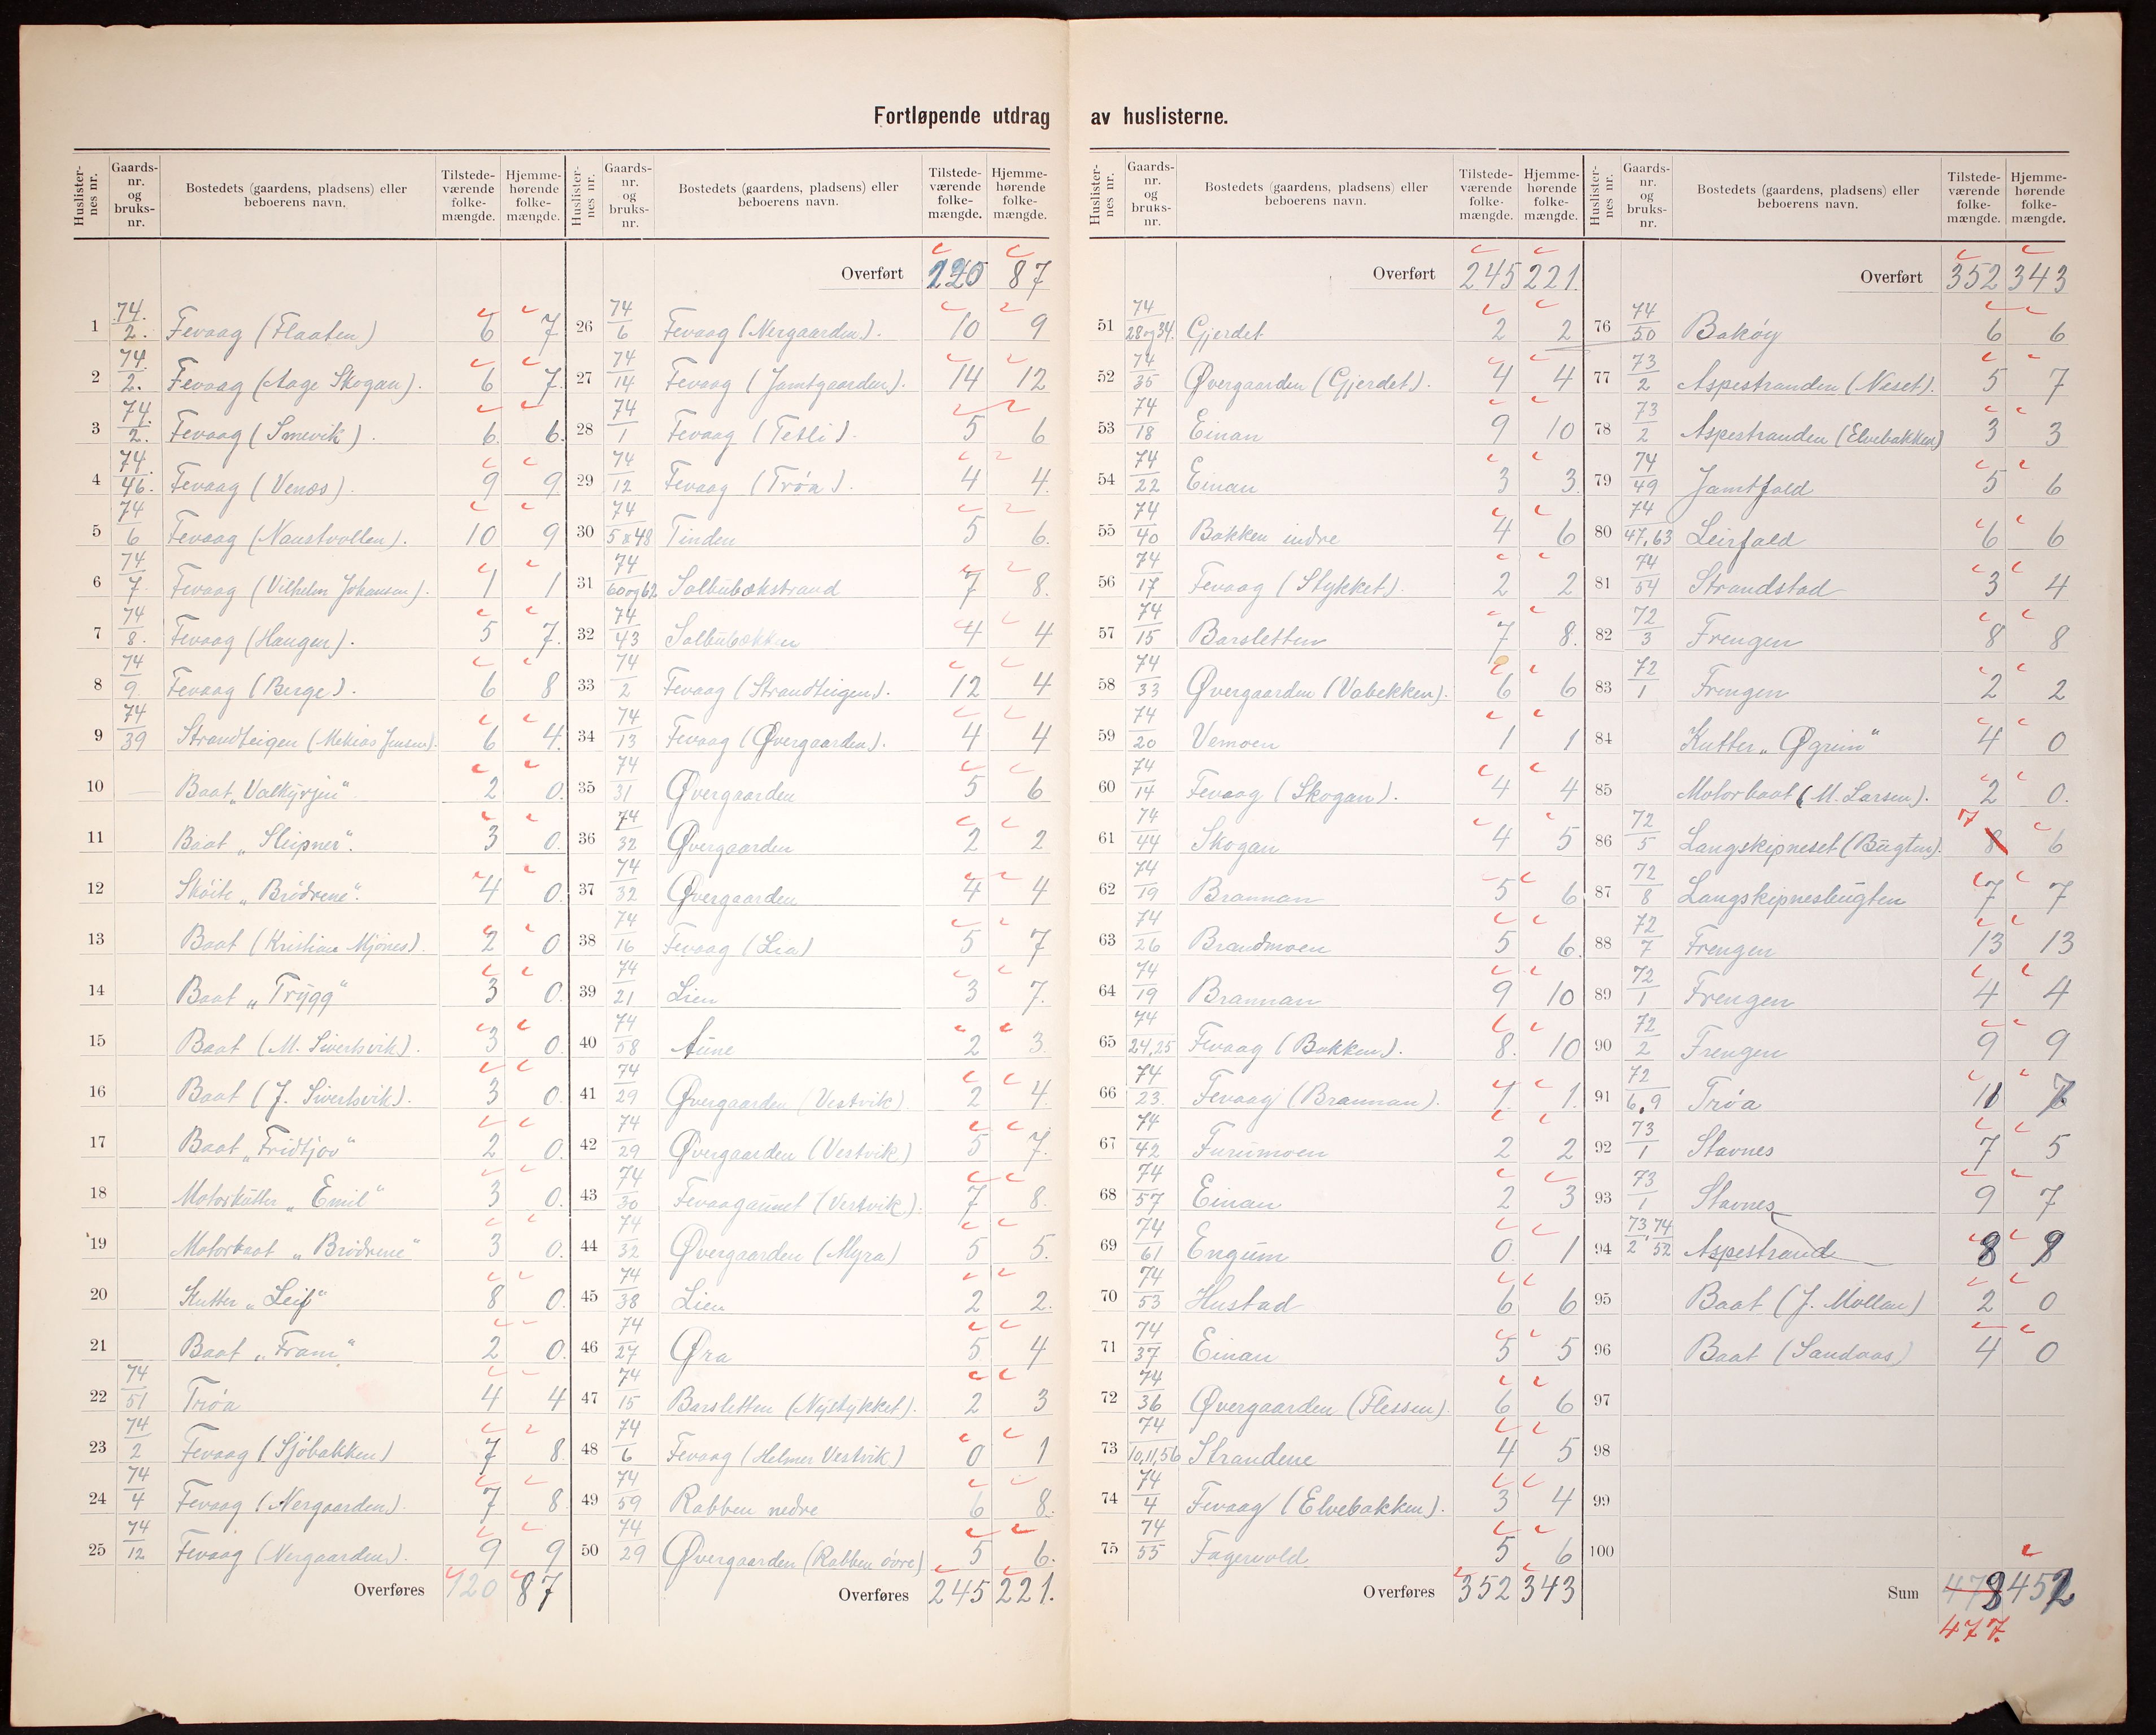 Fortløpende utdrag av huslisterne.
Huslisternes nr. | Gaards-nr. og bruks-nr. | Bostedets (gaardens, pladsens) eller beboerens navn. | Tilstedeværende folkemængde. | Hjemmehørende folkemængde.
1 74/2. Fevaag (Flaaten) 6 7
2 74/2. Fevaag (Aage Skogan). 6 7
3 74/2. Fevaag (Smevik). 6 6
4 74/46. Fevaag (Venæs). 9 9
5 74/6 Fevaag (Naustvollen). 10 9
6 74/7. Fevaag (Vilhelm Johansen). 1 1
7 74/8. Fevaag (Haugen). 5 7.
8 74/9. Fevaag (Berge). 6 8
9 74/39 Strandteigen (Mekias Jensen). 6 4.
10 Baat "Valkyrjen" 2 0.
11 Baat "Sleipner". 3 0.
12 Skøite "Brødrene". 4 0.
13 Baat (Kristian Mjønes). 2 0
14 Baat "Trygg" 3 0.
15 Baat (M. Sivertsvik). 3 0.
16 Baat (J. Sivertsvik). 3 0.
17 Baat "Fridtjov" 2 0.
18 Motorkutter "Emil" 3 0.
19 Motorbaat "Brødrene" 3 0.
20 Kutter "Leif" 8 0.
21 Baat "Fram" 2 0.
22 74/51 Trøa 4 4
23 74/2 Fevaag (Sjøbakken) 7 8.
24 74/4 Fevaag (Nergaarden). 7 8
25 74/12 Fevaag (Nergaarden). 9 9
Overføres 120 87
Huslisternes nr. | Gaards-nr. og bruks-nr. | Bostedets (gaardens, pladsens) eller beboerens navn. | Tilstedeværende folkemængde. | Hjemmehørende folkemængde.
Overført 120 87
26 74/6 Fevaag (Nergaarden). 10 9
27 74/14 Fevaag (Jamtgaarden). 14 12
28 74/1 Fevaag (Tetli). 5 6
29 74/12 Fevaag (Trøa). 4 4.
30 74/5 & 48 Tinden 5 6.
31 74/60 og 62 Salbubækstrand 7 8.
32 74/43 Salbubækken 4 4
33 74/2 Fevaag (Strandteigen). 12 4
34 74/13 Fevaag (Øvergaarden). 4 4
35 74/31 Øvergaarden 5 6
36 74/32 Øvergaarden 2 2
37 74/32 Øvergaarden 4 4
38 74/16 Fevaag (Lia) 5 7
39 74/21 Lien 3 7.
40 74/58 Aune 2 3.
41 74/29 Øvergaarden (Vestvik) 2 4.
42 74/29 Øvergaarden (Vestvik) 5 7.
43 74/30 Fevaagaunet (Vestvik). 7 8.
44 74/32 Øvergaarden (Myra) 5 5.
45 74/38 Lien 2 2.
46 74/27 Øra 5 4
47 74/15 Barsletten (Nystykket). 2 3
48 74/6 Fevaag (Helmer Vestvik) 0 1
49 74/59 Rabben nedre 6 8.
50 74/29 Øvergaarden (Rabben øvre) 5 6.
Overføres 245 221.
Huslisternes nr. | Gaards-nr. og bruks-nr. | Bostedets (gaardens, pladsens) eller beboerens navn. | Tilstedeværende folkemængde. | Hjemmehørende folkemængde.
Overført 245 221.
51 74/28 og 34. Gjerdet 2 2
52 74/35 Øvergaarden (Gjerdet). 4 4
53 74/18 Einan 9 10
54 74/22 Einan 3 3.
55 74/40 Bakken indre 4 6
56 74/17 Fevaag (Stykket). 2 2
57 74/15 Barsletten 7 8.
58 74/33 Øvergaarden (Vabekken). 6 6
59 74/20 Vemoen 1 1
60 74/14 Fevaag (Skogan). 4 4
61 74/44 Skogan 4 5
62 74/19 Brannan 5 6
63 74/26 Brandmoen 5 6.
64 74/19 Brannan 9 10
65 74/24,25 Fevaag (Bakken). 8. 10
66 74/23. Fevaag (Brannan). 1. 1.
67 74/42 Furumoen 2 2
68 74/57 Einan 2 3
69 74/61 Engum 0. 1
70 74/53 Hustad 6 6
71 74/37 Einan 5 5
72 74/36 Øvergaarden (Flessen). 6 6
73 74/10,11,56 Strandene 4 5
74 74/4 Fevaag (Elvebakken). 3 4
75 74/55 Fagervold 5 6
Overføres 352 343
Huslisternes nr. | Gaards-nr. og bruks-nr. | Bostedets (gaardens, pladsens) eller beboerens navn. | Tilstedeværende folkemængde. | Hjemmehørende folkemængde.
Overført 352 343
76 74/50 Bakøy 6 6
77 73/2 Aspestranden (Næset). 5 7
78 73/2 Aspestranden (Elvebakken) 3 3
79 74/49 Jamtfald 5 6
80 74/47,63 Leirfald 6 6
81 74/54 Strandstad 3 4
82 72/3 Frengen 8 8
83 72/1 Frengen 2 2
84 Kutter "Øgrim" 4 0
85 Motorbaat (M. Larsen). 2 0.
86 72/5 Langskipneset (Bugten). 8 7 6
87 72/8 Langskipnesbugten 7 7
88 72/7 Frengen 13 13
89 72/1 Frengen 4 4
90 72/2 Frengen 9 9
91 72/6,9 Trøa 11 7
92 73/1 Stavnes 7 5
93 73/1 Stavnes 9 7
94 73/2, 74/52 Aspestrand 8 9
95 Baat (J. Mollan) 2 0
96 Baat (Sandaas) 4 0
97
98
99
100
Sum 478 452
477.